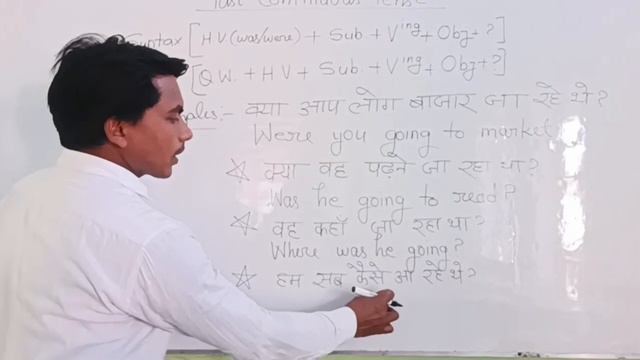 Past Continuous Tense
Syntax [HV (was/were) + Sub + Ving + Obj + ?]
[QW. + HV + Sub + Ving + Obj + ?]
क्या आप लोग बाजार जा रहे थे?
Were you going to market
☆ क्या वह पढ़ने जा रहा था?
Was he going to read?
☆ वह कहाँ जा रहा था?
Where was he going?
☆ हम सब कैसे आ रहे थे?